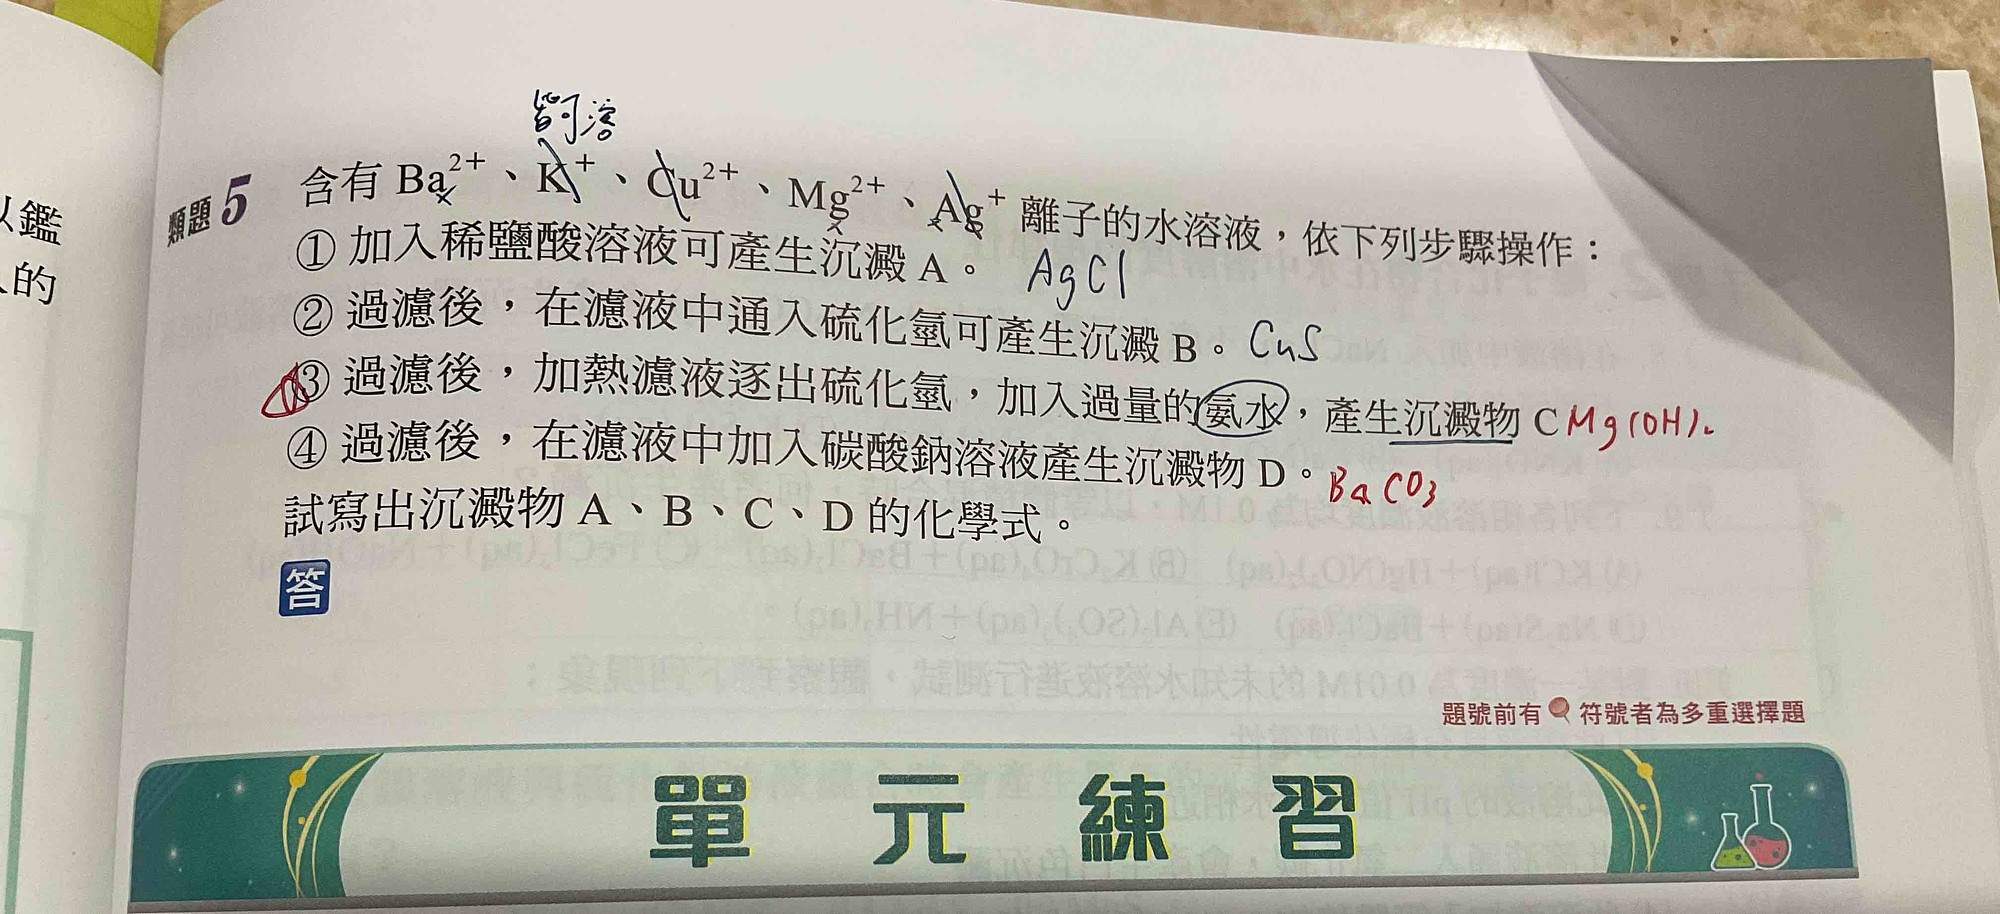 皆可溶
類題5 含有 Ba²⁺、K⁺、Cu²⁺、Mg²⁺、Ag⁺ 離子的水溶液，依下列步驟操作：
① 加入稀鹽酸溶液可產生沉澱 A。 AgCl
② 過濾後，在濾液中通入硫化氫可產生沉澱 B。 CuS
③ 過濾後，加熱濾液逐出硫化氫，加入過量的氨水，產生沉澱物 C Mg(OH)₂
④ 過濾後，在濾液中加入碳酸鈉溶液產生沉澱物 D。 BaCO₃
試寫出沉澱物 A、B、C、D 的化學式。
答
以鑑
人的
題號前有 符號者為多重選擇題
單元練習